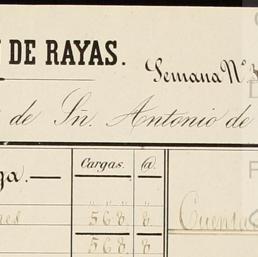 DE RAYAS.
Semana Nº
de Sñ. Antonio de
Cargas. @.
ga.—
res 568. 8. Cuenta
568. 8.